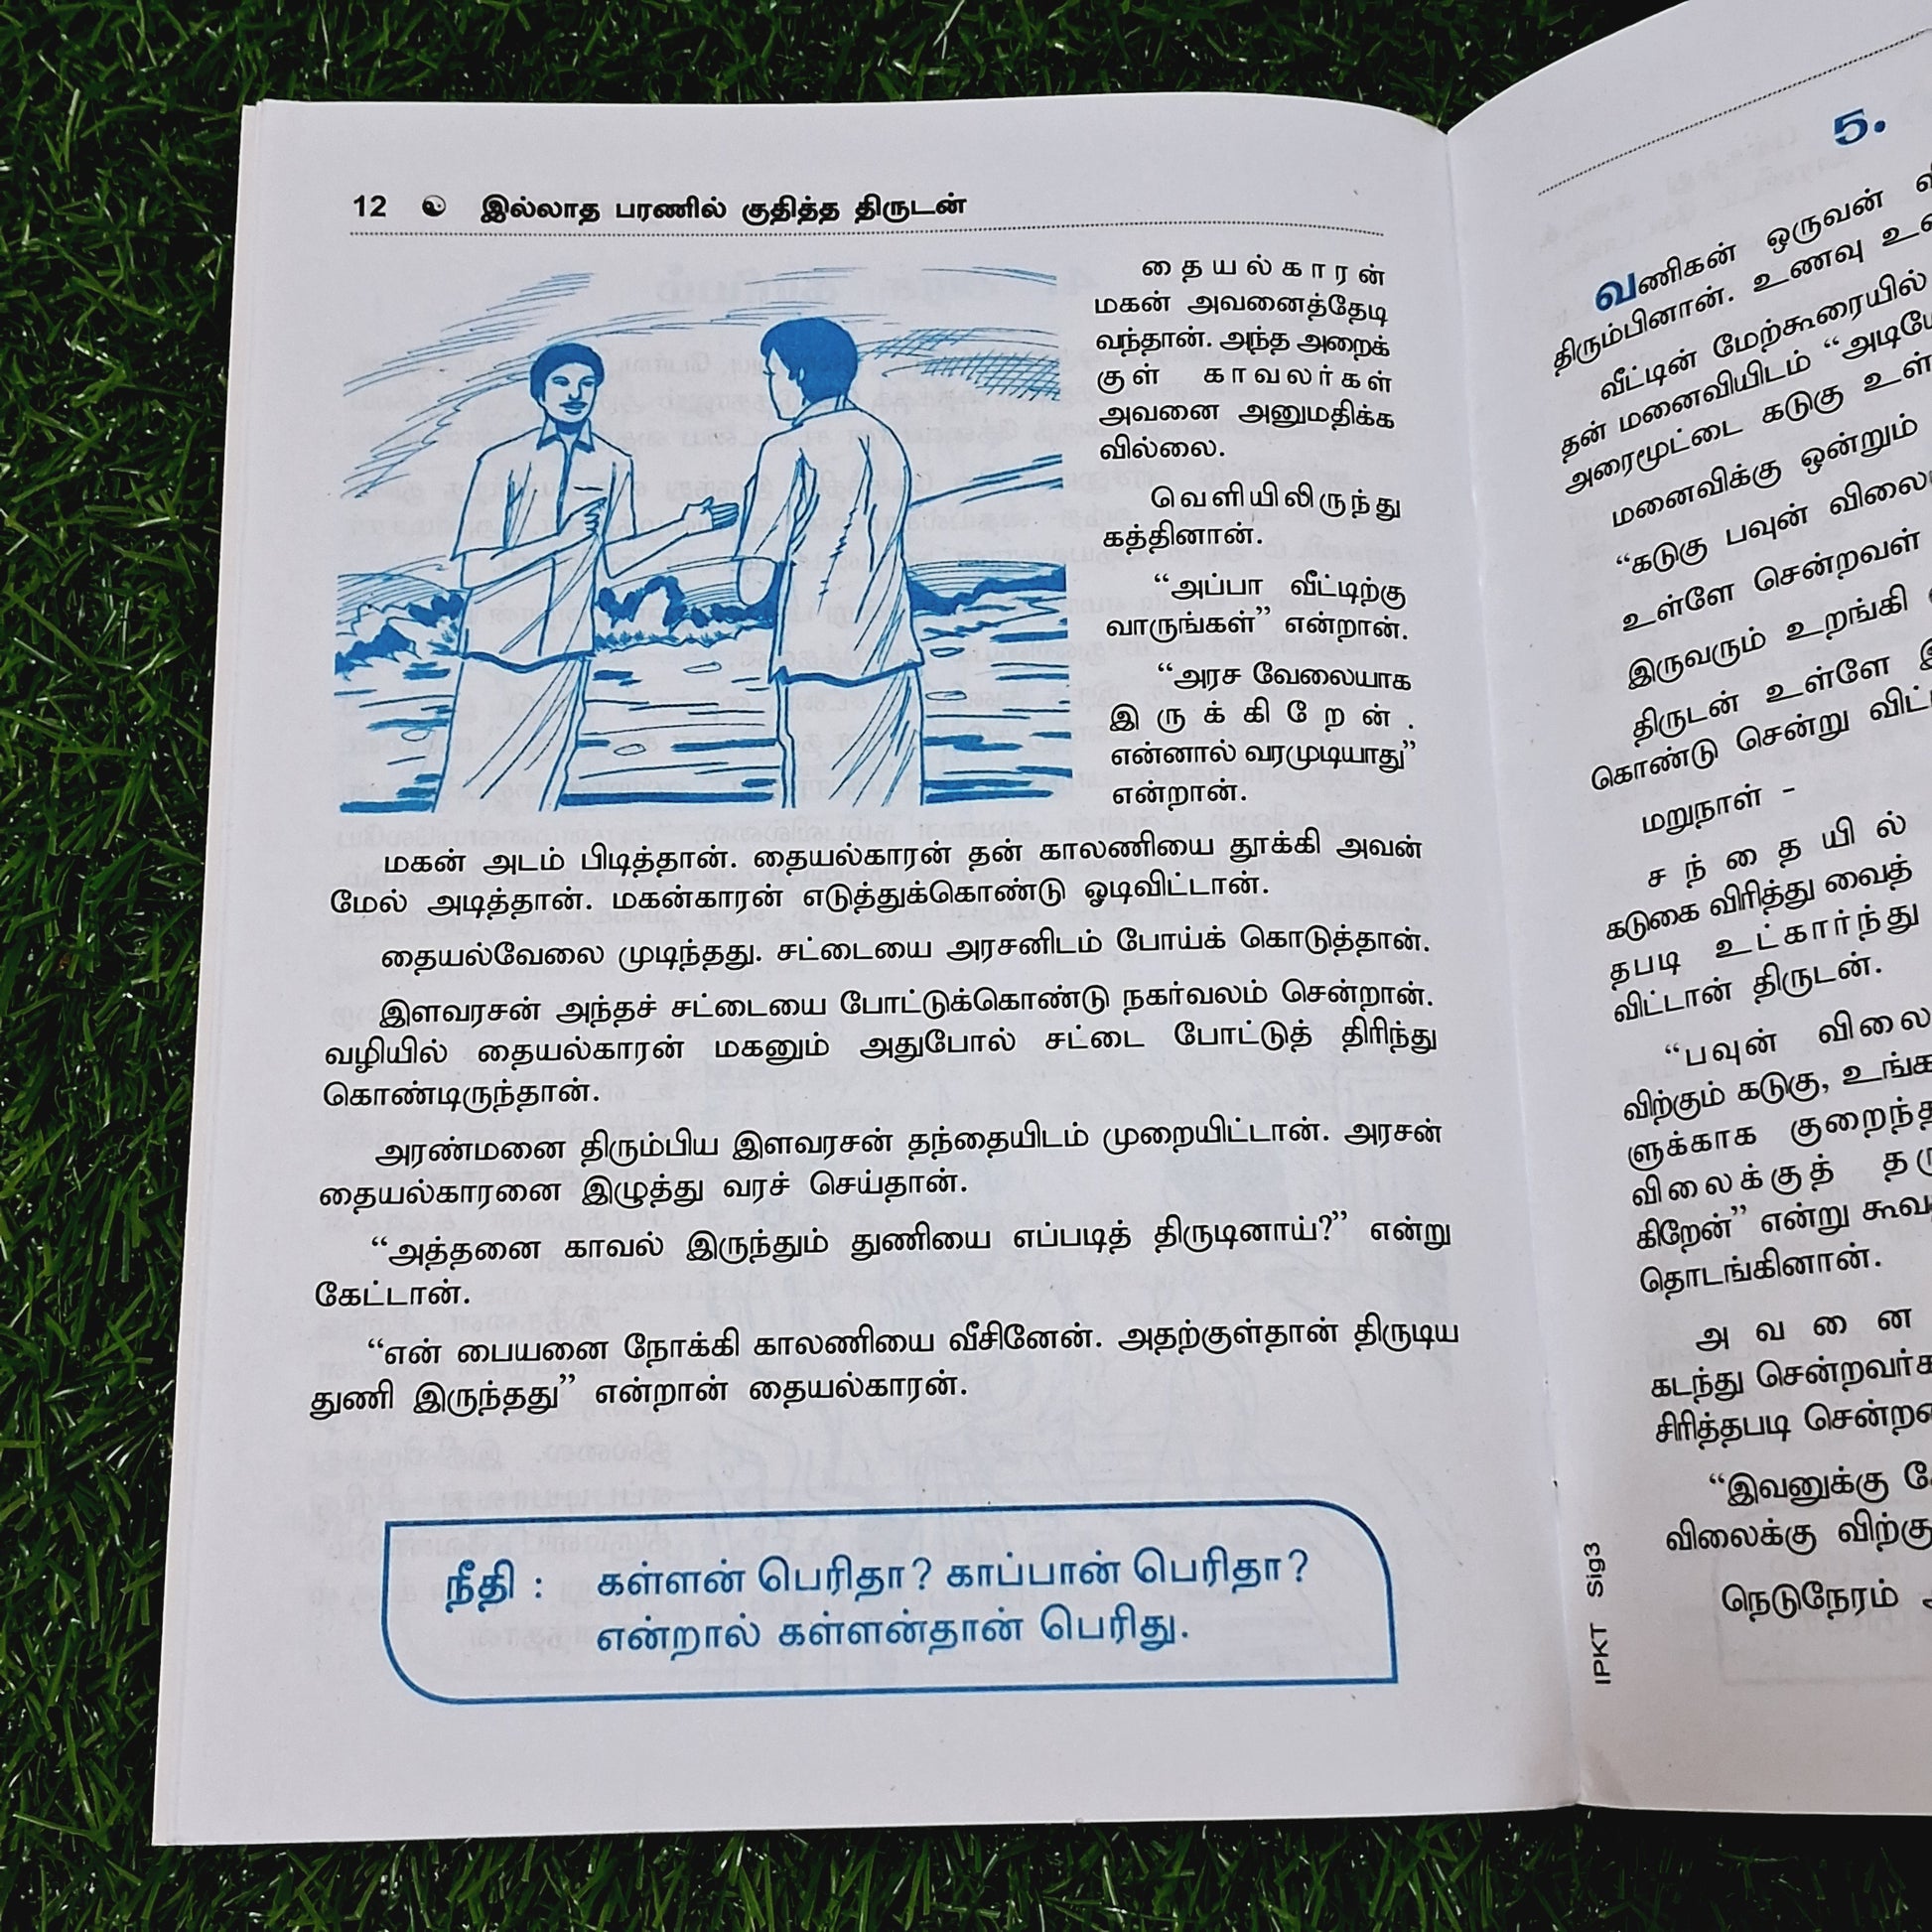 12 இல்லாத பரணில் குதித்த திருடன்
தையல்காரன்
மகன் அவனைத்தேடி
வந்தான். அந்த அறைக்
குள் காவலர்கள்
அவனை அனுமதிக்க
வில்லை.
வெளியிலிருந்து
கத்தினான்.
“அப்பா வீட்டிற்கு
வாருங்கள்” என்றான்.
“அரச வேலையாக
இருக்கிறேன்.
என்னால் வரமுடியாது”
என்றான்.
மகன் அடம் பிடித்தான். தையல்காரன் தன் காலணியை தூக்கி அவன்
மேல் அடித்தான். மகன்காரன் எடுத்துக்கொண்டு ஓடிவிட்டான்.
தையல்வேலை முடிந்தது. சட்டையை அரசனிடம் போய்க் கொடுத்தான்.
இளவரசன் அந்தச் சட்டையை போட்டுக்கொண்டு நகர்வலம் சென்றான்.
வழியில் தையல்காரன் மகனும் அதுபோல் சட்டை போட்டுத் திரிந்து
கொண்டிருந்தான்.
அரண்மனை திரும்பிய இளவரசன் தந்தையிடம் முறையிட்டான். அரசன்
தையல்காரனை இழுத்து வரச் செய்தான்.
“அத்தனை காவல் இருந்தும் துணியை எப்படித் திருடினாய்?” என்று
கேட்டான்.
“என் பையனை நோக்கி காலணியை வீசினேன். அதற்குள்தான் திருடிய
துணி இருந்தது” என்றான் தையல்காரன்.
நீதி : கள்ளன் பெரிதா? காப்பான் பெரிதா?
என்றால் கள்ளன்தான் பெரிது.
5.
வணிகன் ஒருவன்
திரும்பினான். உணவு
வீட்டின் மேற்கூரையில்
தன் மனைவியிடம்
அரைமூட்டை கடுகு
மனைவிக்கு ஒன்றும்
“கடுகு பவுன்
உள்ளே சென்றவள்
இருவரும் உறங்கி
திருடன் உள்ளே
கொண்டு சென்று
மறுநாள் -
சந்தையில்
கடுகை விரித்து வைத்
தபடி உட்கார்ந்து
விட்டான் திருடன்.
“பவுன் விலை
விற்கும் கடுகு,
ளுக்காக
விலைக்குத்
கிறேன்” என்று
தொடங்கினான்.
அவனை
கடந்து
சிரித்தபடி
“இவனுக்கு
விலைக்கு
நெடுநேரம்
IPKT Sig3